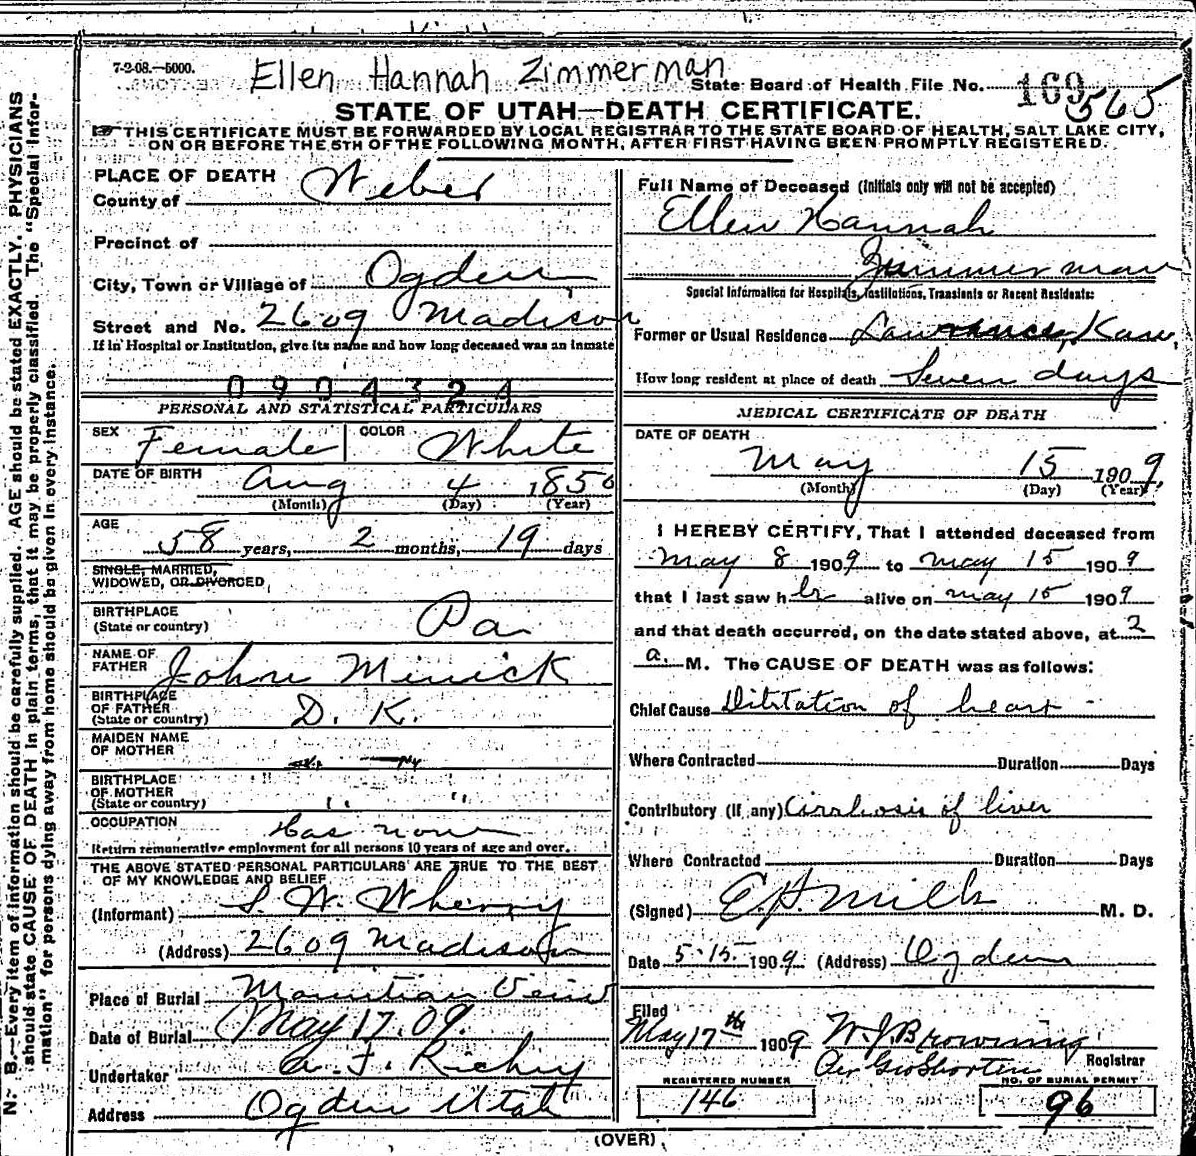 7-2-08.—5000.
Ellen Hannah Zimmerman
State Board of Health File No. 169 565
STATE OF UTAH—DEATH CERTIFICATE.
THIS CERTIFICATE MUST BE FORWARDED BY LOCAL REGISTRAR TO THE STATE BOARD OF HEALTH, SALT LAKE CITY,
ON OR BEFORE THE 5TH OF THE FOLLOWING MONTH, AFTER FIRST HAVING BEEN PROMPTLY REGISTERED.
N. B.—Every item of information should be carefully supplied. AGE should be stated EXACTLY. PHYSICIANS
should state CAUSE OF DEATH in plain terms, that it may be properly classified. The "Special Infor-
mation" for persons dying away from home should be given in every instance.
PLACE OF DEATH
County of Weber
Precinct of
City, Town or Village of Ogden
Street and No. 2609 Madison
If in Hospital or Institution, give its name and how long deceased was an inmate
0904324
PERSONAL AND STATISTICAL PARTICULARS
SEX Female COLOR White
DATE OF BIRTH Aug 4 1850
(Month) (Day) (Year)
AGE
58 years, 2 months, 19 days
SINGLE, MARRIED,
WIDOWED, OR DIVORCED
BIRTHPLACE
(State or country) Pa
NAME OF
FATHER John Minick
BIRTHPLACE
OF FATHER
(State or country) D. K.
MAIDEN NAME
OF MOTHER
BIRTHPLACE
OF MOTHER
(State or country) " "
OCCUPATION Has none
Return remunerative employment for all persons 10 years of age and over.
THE ABOVE STATED PERSONAL PARTICULARS ARE TRUE TO THE BEST
OF MY KNOWLEDGE AND BELIEF
(Informant) S. W. Wherry
(Address) 2609 Madison
Place of Burial Mountian Veiw
Date of Burial May 17. 09.
Undertaker A. F. Richey
Address Ogden Utah
Full Name of Deceased (Initials only will not be accepted)
Ellen Hannah
Zimmerman
Special Information for Hospitals, Institutions, Transients or Recent Residents:
Former or Usual Residence Lawrence, Kan,
How long resident at place of death Seven days
MEDICAL CERTIFICATE OF DEATH
DATE OF DEATH
May 15 1909,
(Month) (Day) (Year)
I HEREBY CERTIFY, That I attended deceased from
May 8 1909 to May 15 1909
that I last saw her alive on May 15 1909
and that death occurred, on the date stated above, at 2
a. M. The CAUSE OF DEATH was as follows:
Chief Cause Dilitation of heart
Where Contracted Duration Days
Contributory (if any) Cirrhosis of liver
Where Contracted Duration Days
(Signed) M. D.
Date 5-15- 1909. (Address) Ogden
Filed
May 17th 1909 W. J. Browning
Per Geo Shorten Registrar
REGISTERED NUMBER NO. OF BURIAL PERMIT
146 96
(OVER)